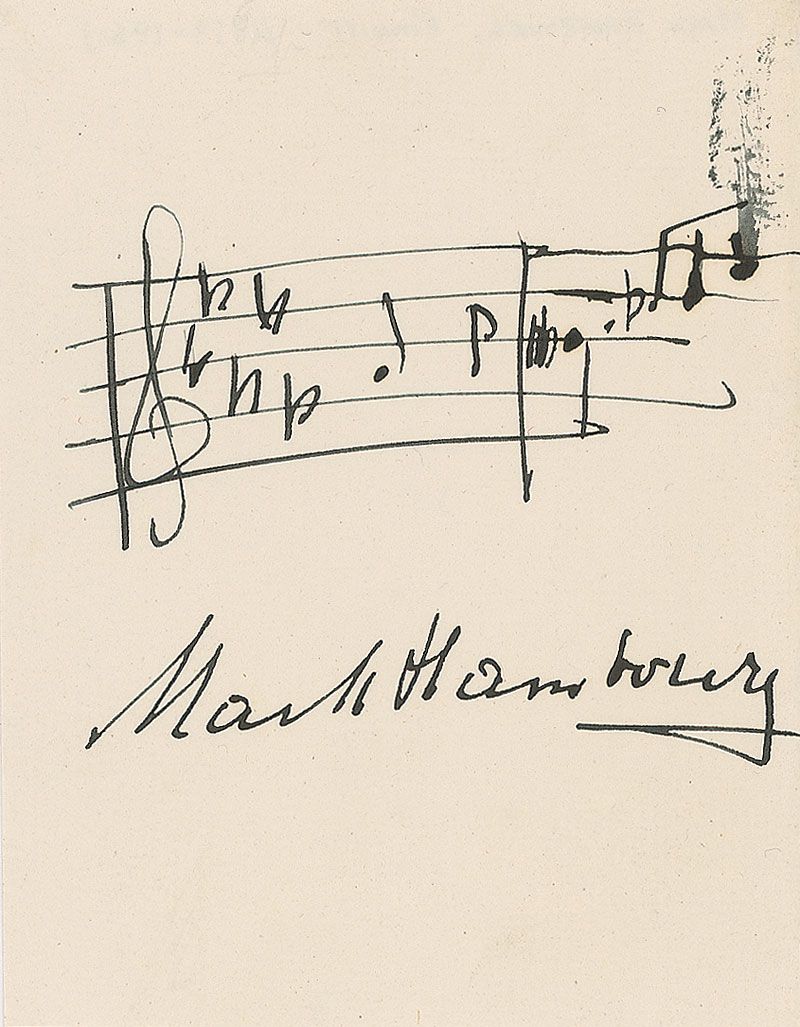 Mark Hambourg